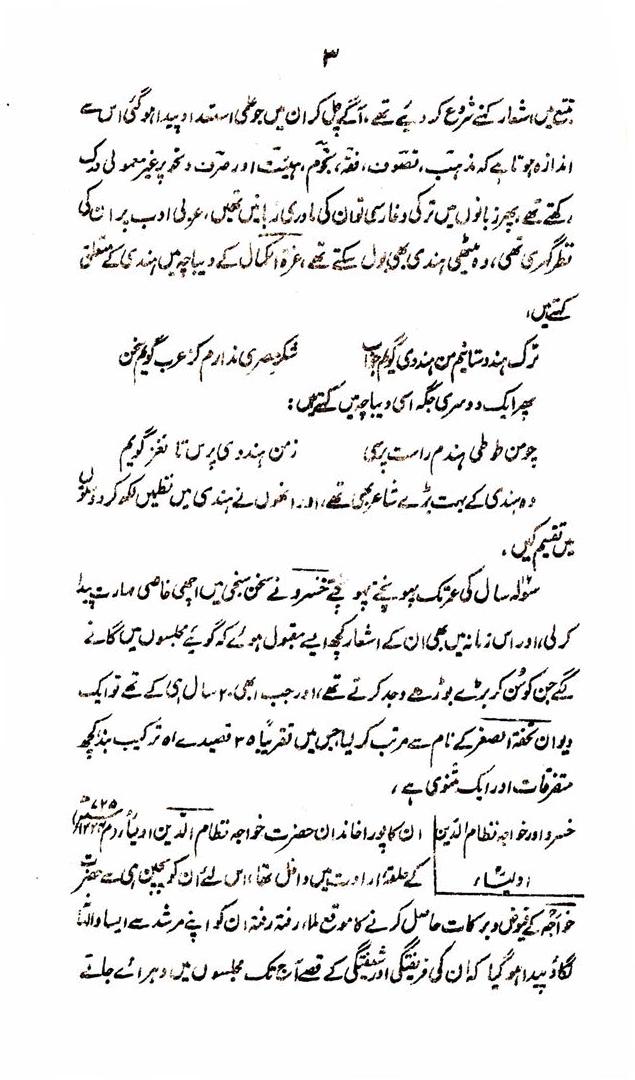 ۳
تتبع میں اشعار کہنے شروع کر دیئے تھے، آگے چل کر ان میں جو علمی استعداد پیدا ہو گئی اس سے
اندازہ ہوتا ہے کہ مذہب، تصوف، فقہ، نجوم، ہیئت اور صرف و نحو پر غیر معمولی درک
رکھتے تھے، پھر زبانوں میں ترکی و فارسی تو ان کی مادری زبانیں تھیں، عربی ادب پر ان کی
نظر گہری تھی، وہ میٹھی ہندی بھی بول سکتے تھے، غرۃ الکمال کے دیباچہ میں ہندی کے متعلق
کہتے ہیں،
ترک ہندوستانیم من ہندوی گویم جواب شکر مصری ندارم کز عرب گویم سخن
پھر ایک دوسری جگہ اسی دیباچہ میں کہتے ہیں:
چو من طوطی ہندم راست پرسی زمن ہندوی پرس تا نغز گویم
وہ ہندی کے بہت بڑے شاعر بھی تھے، اور انھوں نے ہندی میں نظمیں لکھ کر دوستوں
میں تقسیم کیں،
سولہ سال کی عمر تک پہونچتے پہونچتے خسرو نے سخن سنجی میں اچھی خاصی مہارت پیدا
کر لی، اور اس زمانہ میں بھی ان کے اشعار کچھ ایسے مقبول ہوئے کہ گویے مجلسوں میں گانے
لگے جن کو سن کر بڑے بوڑھے وجد کرتے تھے، اور جب ابھی ۲۰ سال ہی کے تھے تو ایک
دیوان تحفۃ الصغر کے نام سے مرتب کر لیا، جس میں تقریباً ۳۵ قصیدے ۵۱ ترکیب بند کچھ
متفرقات اور ایک مثنوی ہے،
خسرو اور خواجہ نظام الدین اولیاء
ان کا پورا خاندان حضرت خواجہ نظام الدین اولیاءؒ (م ۷۲۵ھ
کے حلقۂ ارادت میں داخل تھا، اس لئے ان کو بچپن ہی سے حضرت
خواجہؒ کے فیوض و برکات حاصل کرنے کا موقع ملا، رفتہ رفتہ ان کو اپنے مرشد سے ایسا والہانہ
لگاؤ پیدا ہو گیا کہ ان کی فریفتگی اور شیفتگی کے قصے آج تک مجلسوں میں دہرائے جاتے